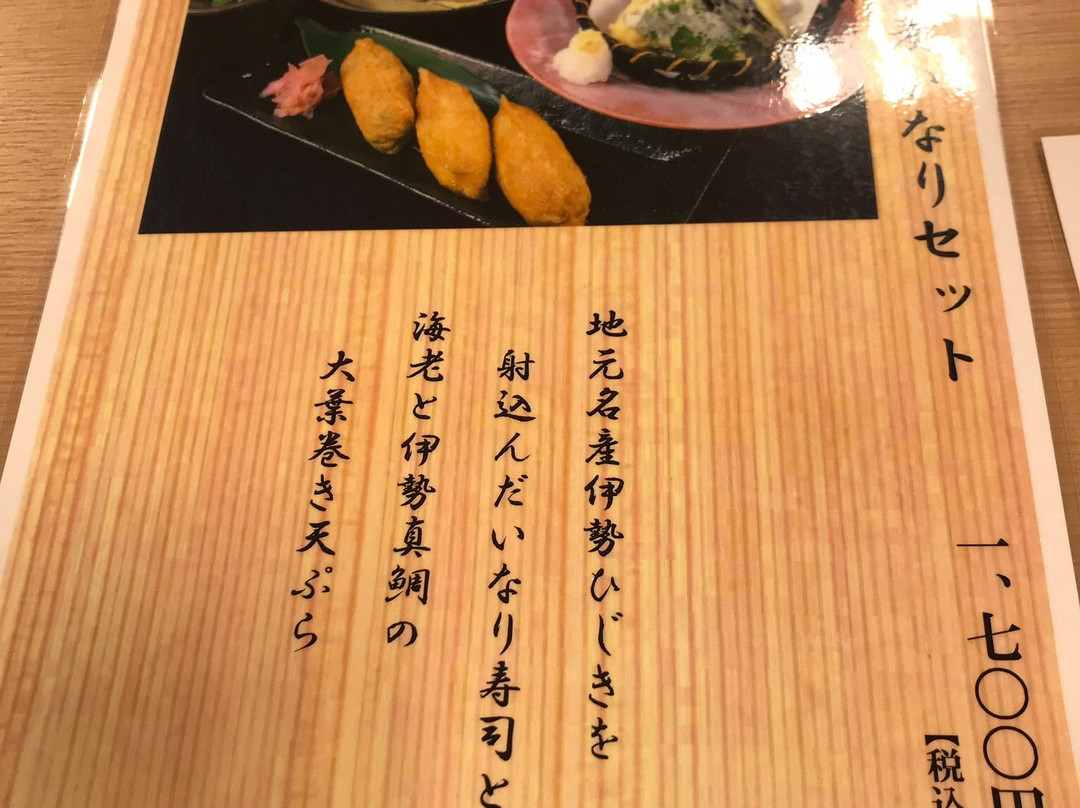 なりセット
一、七〇〇円
【税込
地元名産伊勢ひじきを
射込んだいなり寿司と
海老と伊勢真鯛の
大葉巻き天ぷら